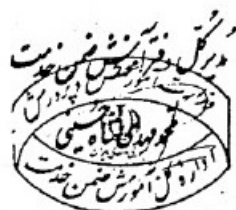 مدیر کل دفتر آموزش ضمن خدمت
وزارت آموزش و پرورش
محمدمهدی شاه حسینی
اداره کل آموزش ضمن خدمت